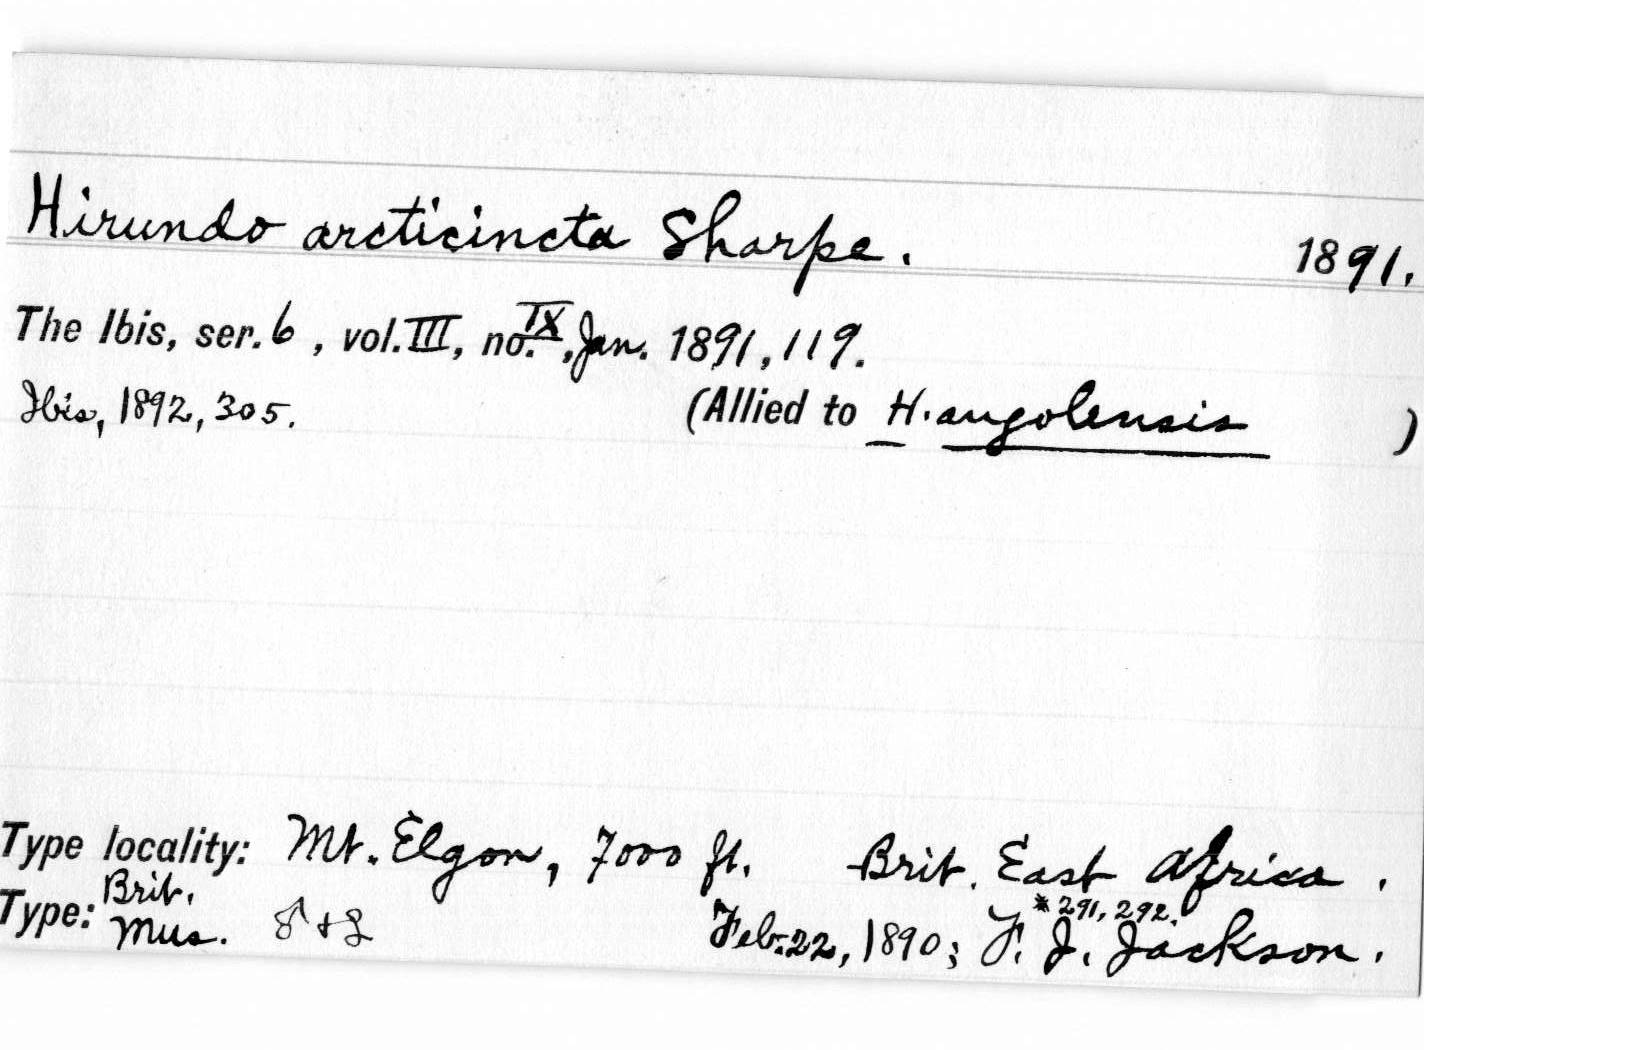 Hirundo arcticincta Sharpe. 1891.
The Ibis, ser. 6, vol. III, no. IX, Jan. 1891, 119.
Ibis, 1892, 305. (Allied to H. angolensis )
Type locality: Mt. Elgon, 7000 ft. Brit. East Africa.
Type: Brit. Mus. ♂ + ♀ Feb. 22, 1890; F. J. Jackson.
* 291, 292.